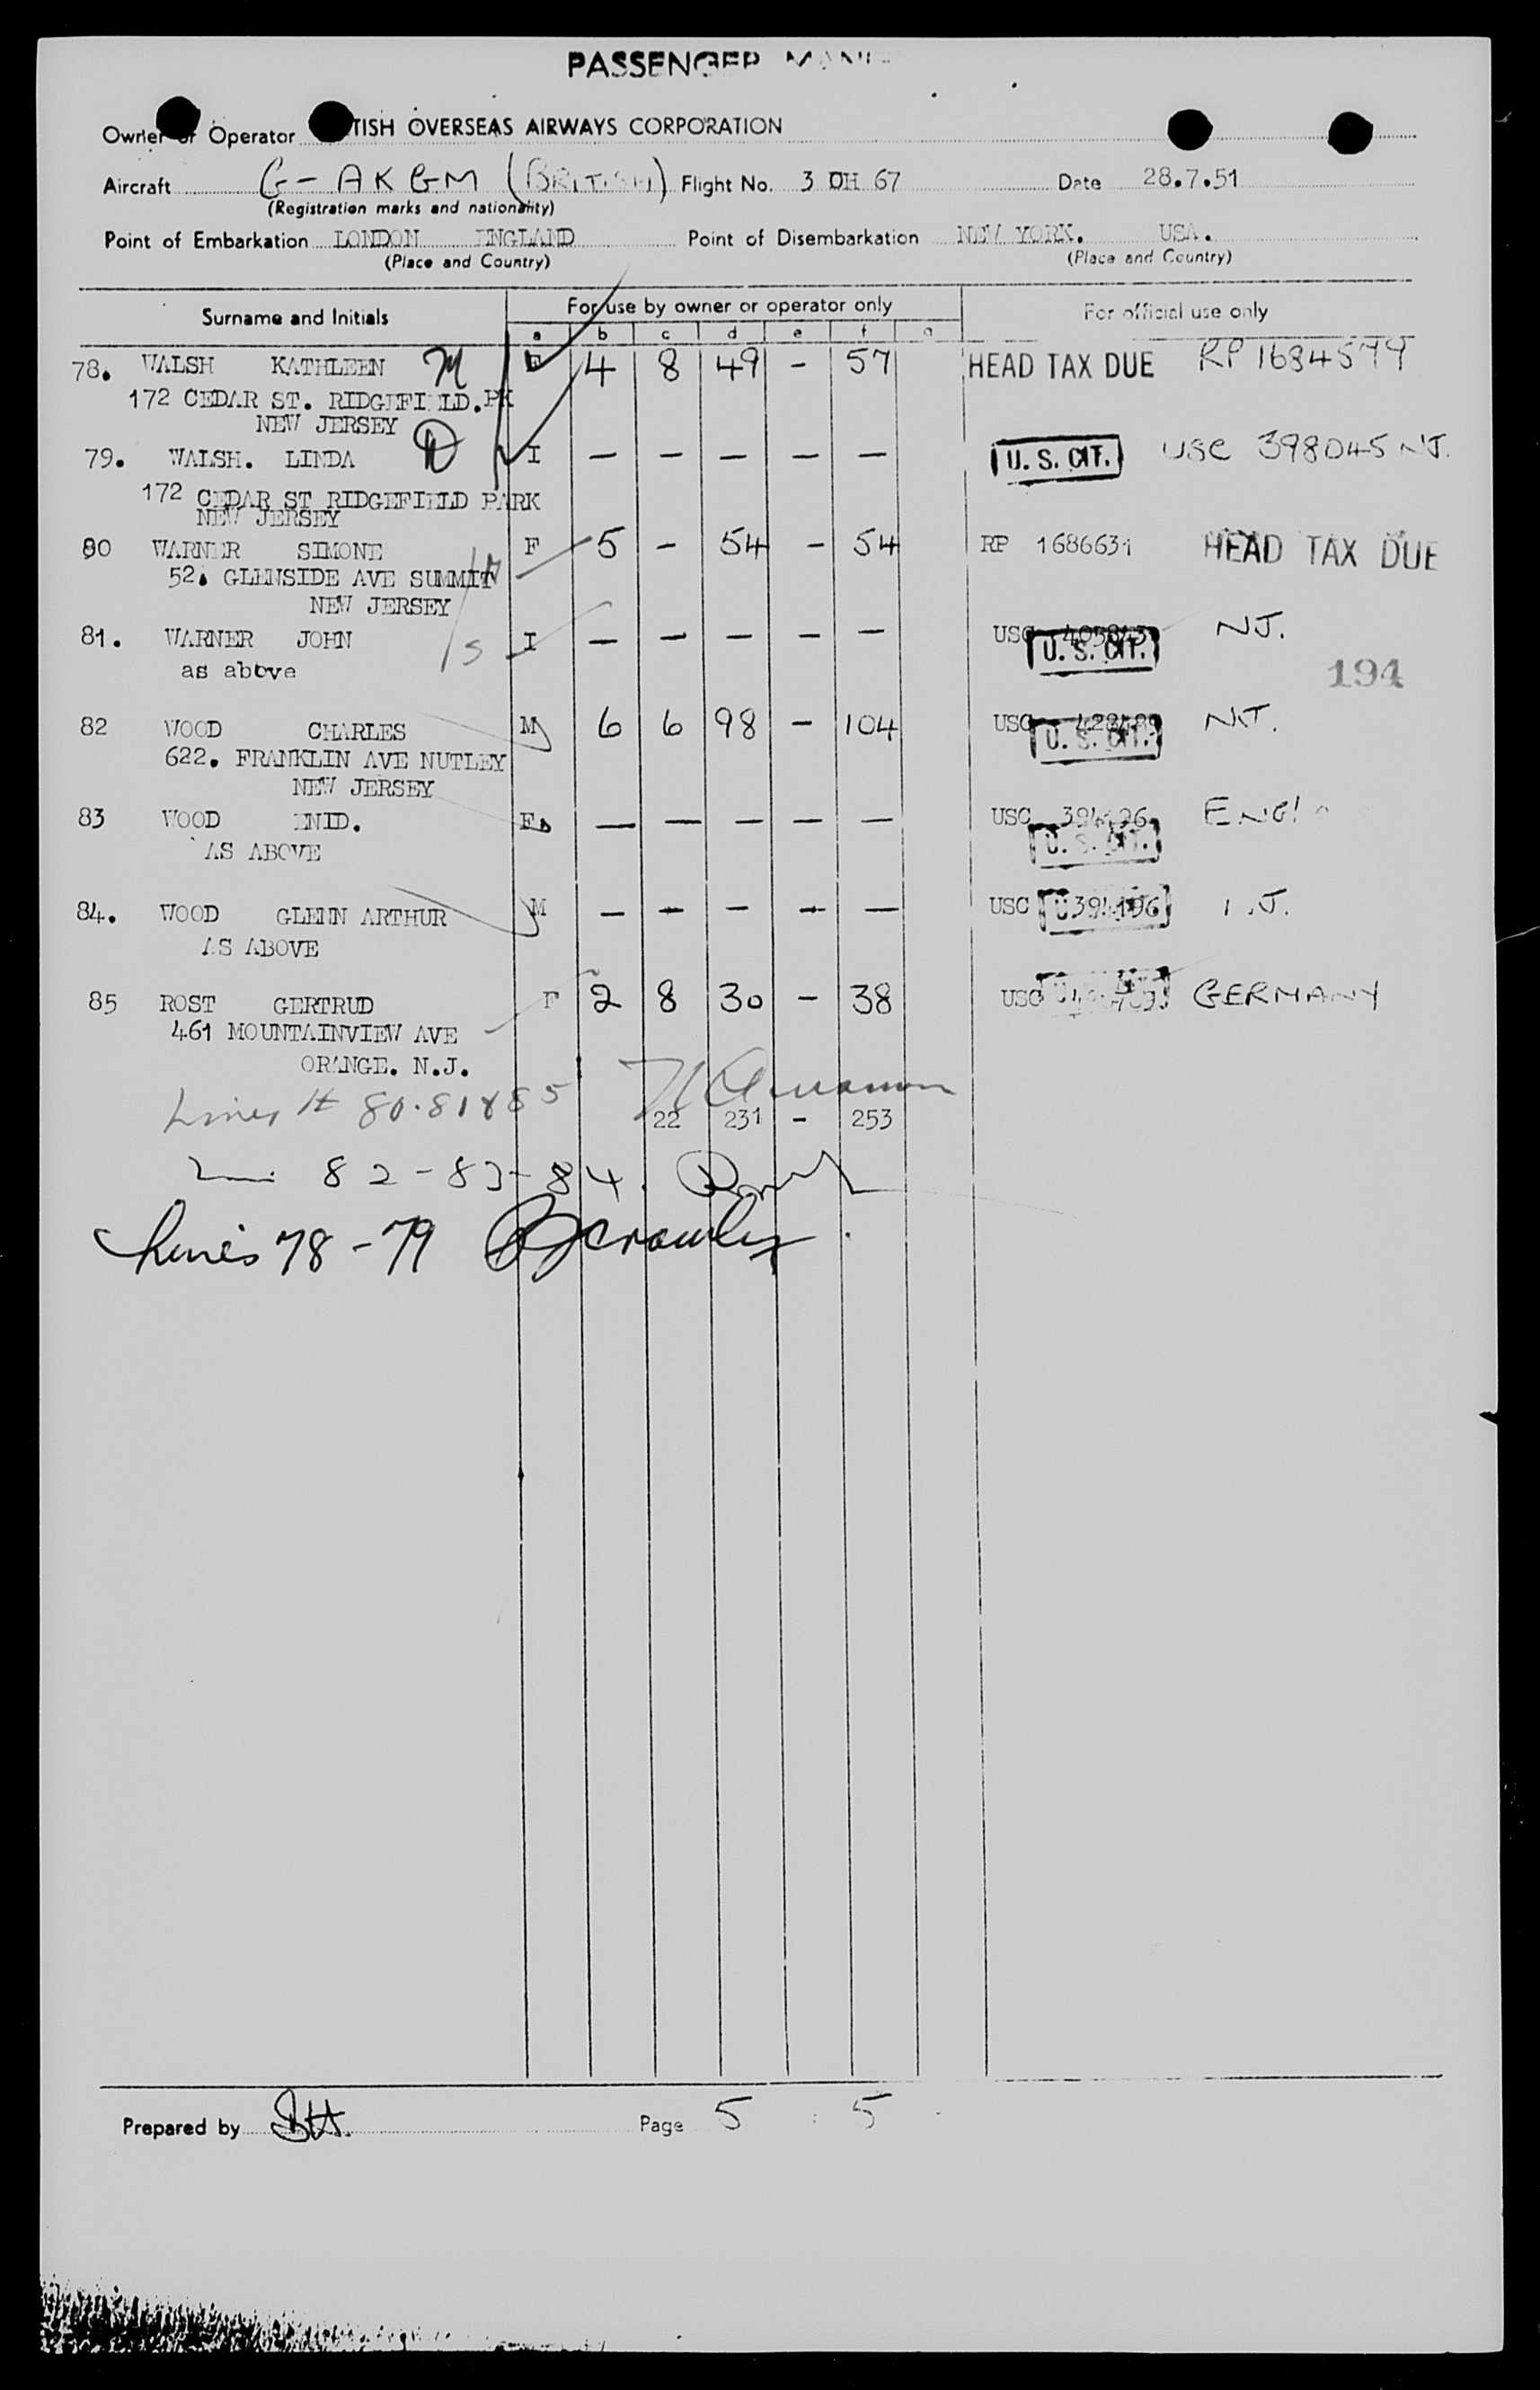 PASSENGER MANI
Owner or Operator TISH OVERSEAS AIRWAYS CORPORATION
Aircraft G-AKGM (BRITISH) Flight No. 3 OH 67 Date 28.7.51
(Registration marks and nationality)
Point of Embarkation LONDON ENGLAND Point of Disembarkation NEW YORK. USA.
(Place and Country) (Place and Country)
Surname and Initials For use by owner or operator only For official use only
a b c d e f g
78. WALSH KATHLEEN M F 4 8 49 - 57 HEAD TAX DUE RP 1684579
172 CEDAR ST. RIDGEFIELD.PK
NEW JERSEY
79. WALSH. LINDA D I - - - - - U. S. CIT. USC 398045 NJ.
172 CEDAR ST RIDGEFIELD PARK
NEW JERSEY
80 WARNER SIMONE F 5 - 54 - 54 RP 1686631 HEAD TAX DUE
52. GLENSIDE AVE SUMMIT
NEW JERSEY
81. WARNER JOHN S I - - - - - USC U. S. CIT. NJ.
as above
194
82 WOOD CHARLES M 6 6 98 - 104 USC U. S. CIT. NJ.
622. FRANKLIN AVE NUTLEY
NEW JERSEY
83 WOOD ENID. F - - - - - USC 394196 U. S. CIT.
AS ABOVE
84. WOOD GLENN ARTHUR M - - - - - USC 394196 .J.
AS ABOVE
85 ROST GERTRUD F 2 8 30 - 38 USC GERMANY
461 MOUNTAINVIEW AVE
ORANGE. N.J.
Lines # 80.81 & 85
22 231 - 253
82-83-84.
Lines 78-79 Crowley
Prepared by Page 5 : 5